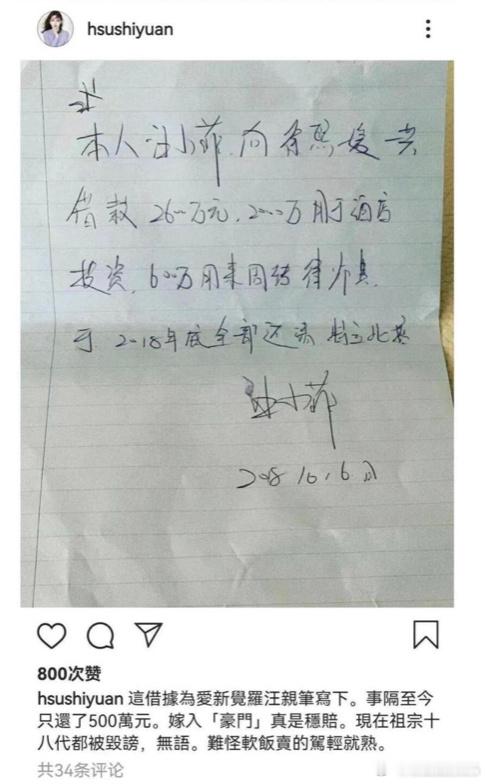 hsushiyuan
本人汪小菲向徐熙媛共
借款2600万元，2000万用于酒店
投资，600万用来周转律师费.
于2018年底全部还清 特立此据
汪小菲
2018 10.6日
800次赞
hsushiyuan 這借據為愛新覺羅汪親筆寫下。事隔至今
只還了500萬元。嫁入「豪門」真是穩賠。現在祖宗十
八代都被毀謗，無語。難怪軟飯賣的駕輕就熟。
共34条评论